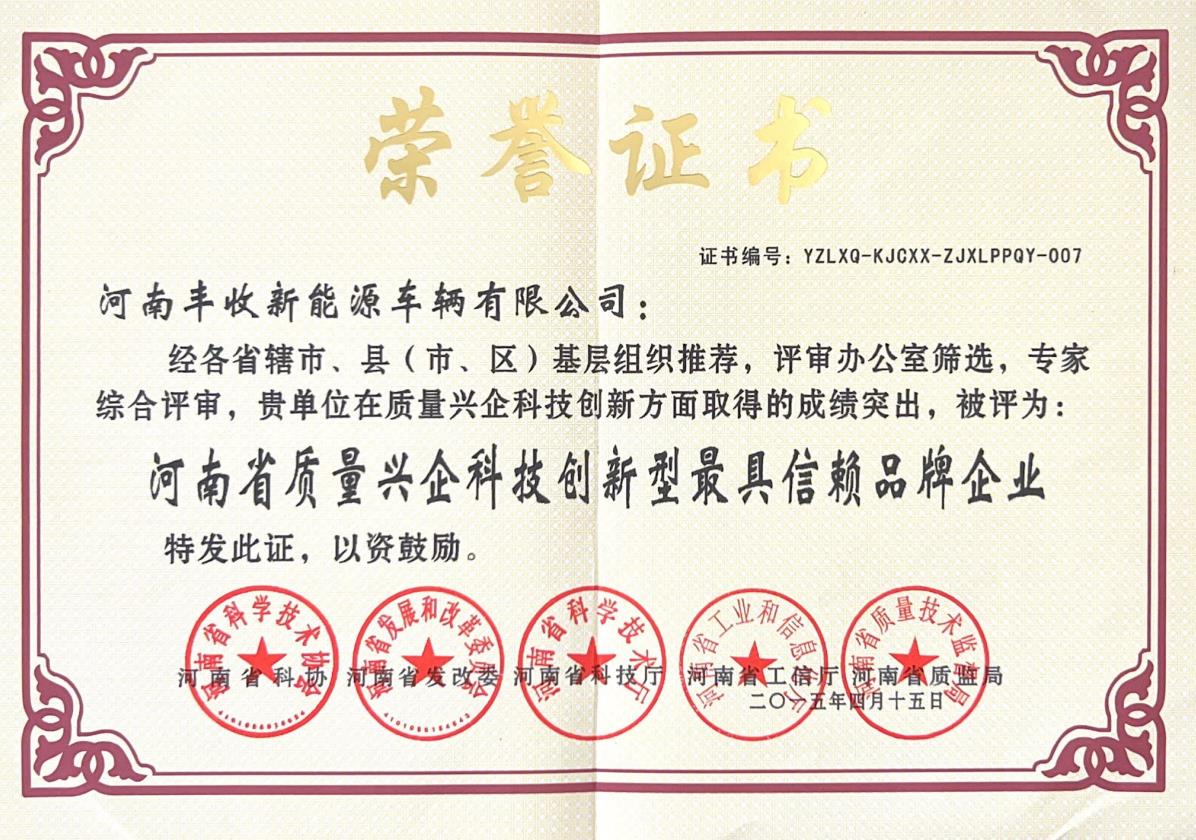 荣誉证书
证书编号：YZLXQ-KJCXX-ZJXLPPQY-007
河南丰收新能源车辆有限公司：
经各省辖市、县（市、区）基层组织推荐，评审办公室筛选，专家
综合评审，贵单位在质量兴企科技创新方面取得的成绩突出，被评为：
河南省质量兴企科技创新型最具信赖品牌企业
特发此证，以资鼓励。
河南省科学技术协会
河南省发展和改革委员会
河南省科学技术厅
河南省工业和信息化厅
河南省质量技术监督局
河南省科协 河南省发改委 河南省科技厅 河南省工信厅 河南省质监局
二〇一五年四月十五日